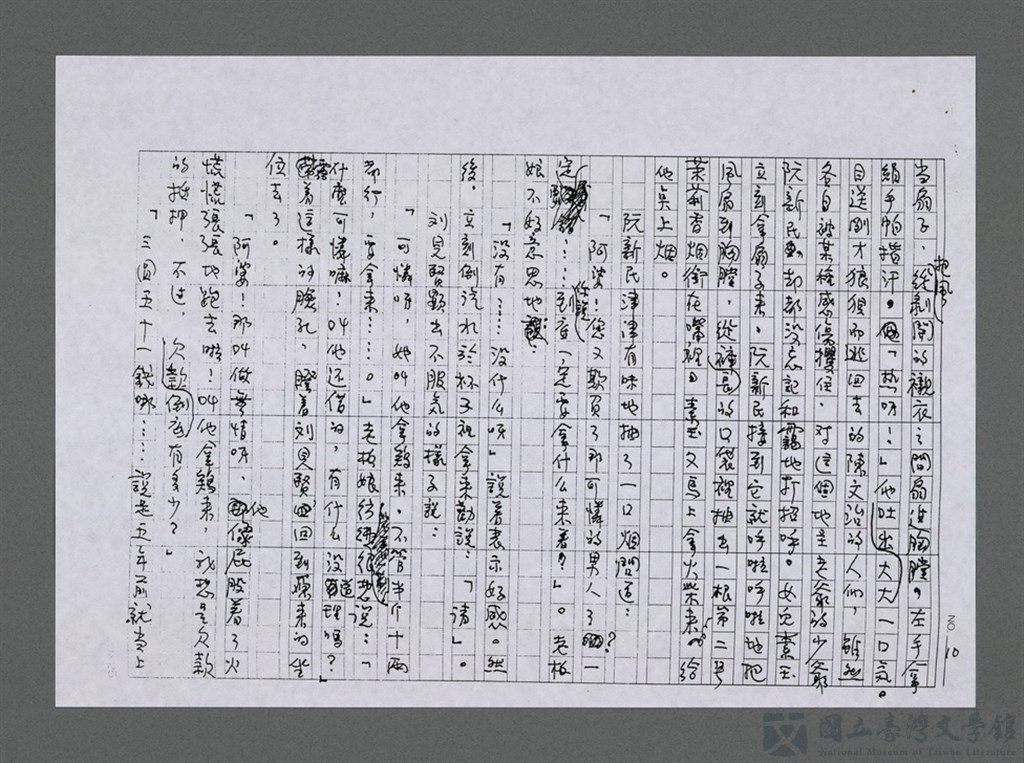 当扇子、從剝開的襯衣之間扇進胸膛。左手拿
把風
絹手帕揩汗。「热呀!」他吐出大大一口気。
目送剛才狼狽而逃回去的陳文治的人們,雖然
各自被某種感傷攫住、对这個地主老爺的少爺
阮新民卻都没忘記和靄地打招呼。女兒素玉
立刻拿扇子来。阮新民接到它就呼啦呼啦地把
风扇到胸膛,從褲長的口袋裡抽出一根第二号
茉莉香烟銜在嘴裡。素玉又馬上拿火柴来給
他点上烟。
阮新民津津有味地抽了一口烟問道:
「阿婆!您又欺負了那可憐的男人了?一
定……到底一定要拿什么来着?」。老板
娘不好意思地說:
「没有……没什么呀」說着表示好感。然
後,立刻倒汽水於杯子裡拿来勸說:「请」。
刘見賢顯出不服気的樣子說:
「可憐呀,她叫他拿鷄来,不管半个十两
都行,要拿来……。」老板娘彷彿很愁說:「
什麼可憐嘛!叫他还借的,有什么没道理嗎?」
帶着這樣的臉孔、瞪着刘見賢,回到原来的坐
位去了。
「阿婆!那叫做無情呀、他像屁股着了火
慌慌張張地跑去啦!叫他拿鷄来,我想是欠款
的抵押,不过,欠款倒底有多少?」
「三圓五十一錢哪……說是五年前就当上
30
10
國立臺灣文學館
National Museum of Taiwan Literature